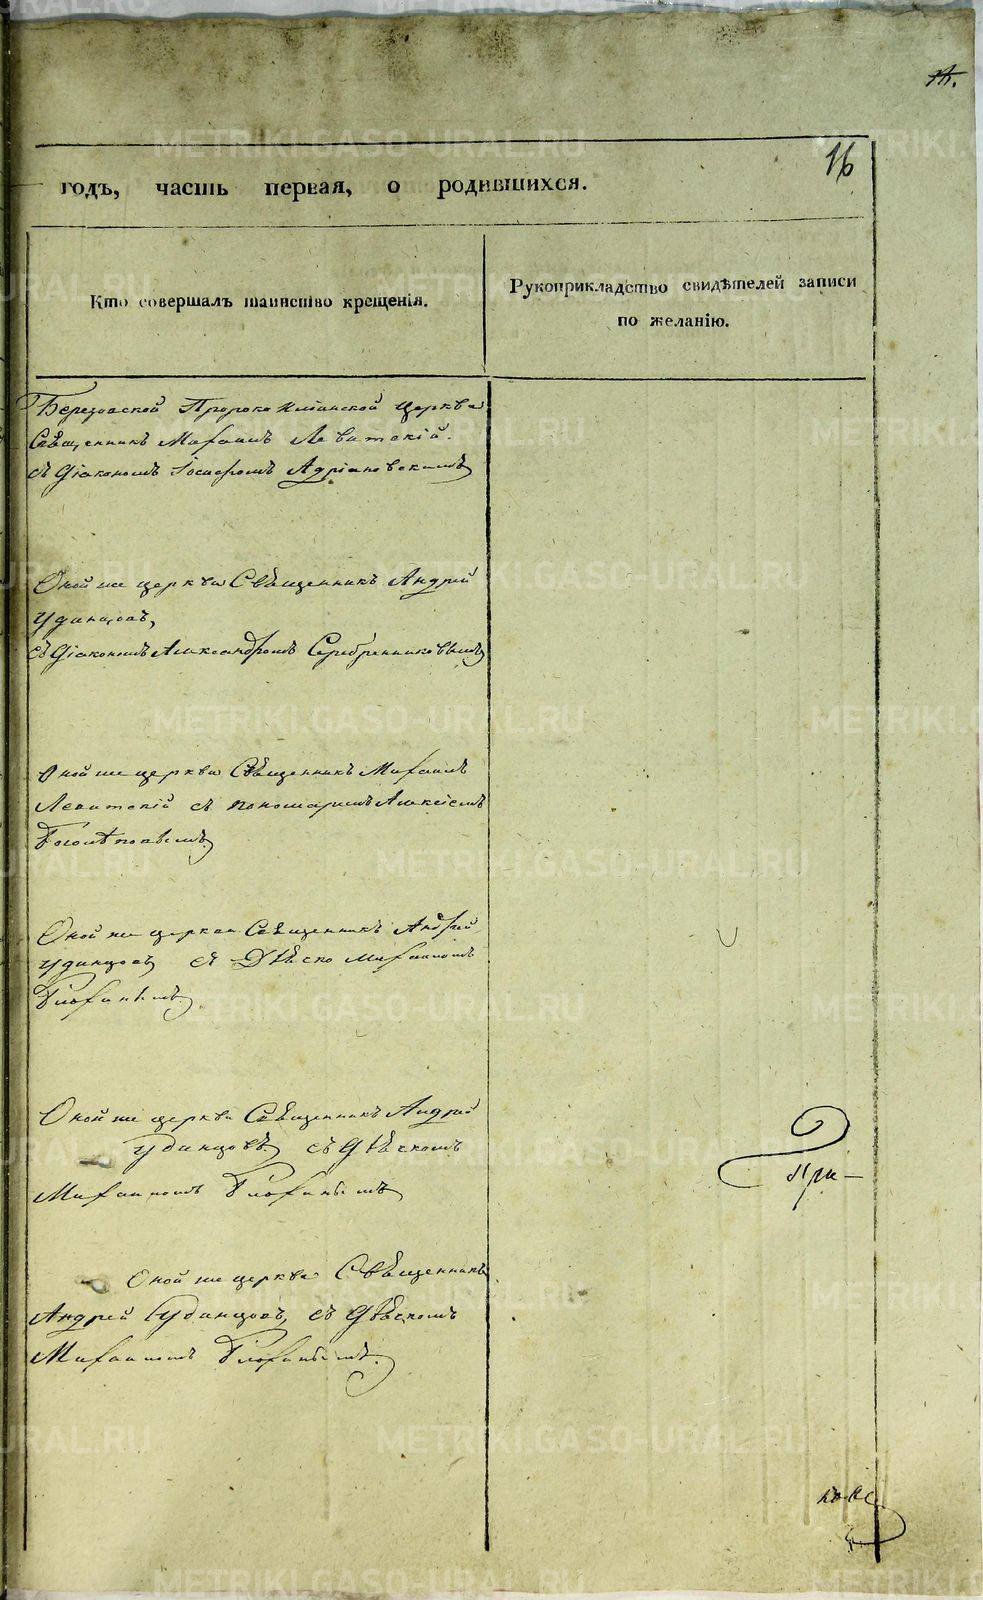 16
годъ, часть первая, о родившихся.
Кто совершалъ таинство крещенія.
Рукоприкладство свидѣтелей записи
по желанію.
Березовской Пророко Ильинской церкви
Священникъ Михаилъ Левитскій
съ Діакономъ Іосифомъ Адріановскимъ
Оной же церкви Священникъ Андрей
Удинцовъ,
съ Діакономъ Александромъ Серебренниковымъ
Оной же церкви Священникъ Михаилъ
Левитскій съ пономаремъ Алексіемъ
Боголѣповымъ
Оной же церкви Священникъ Андрей
Удинцовъ съ Дьяско Михаиломъ
Оной же церкви Священникъ Андрей
Удинцовъ съ Дьячкомъ
Михаиломъ
Оной же церкви Священникъ
Андрей Удинцовъ, съ Дьячкомъ
Михаиломъ
При-
METRIKI.GASO-URAL.RU